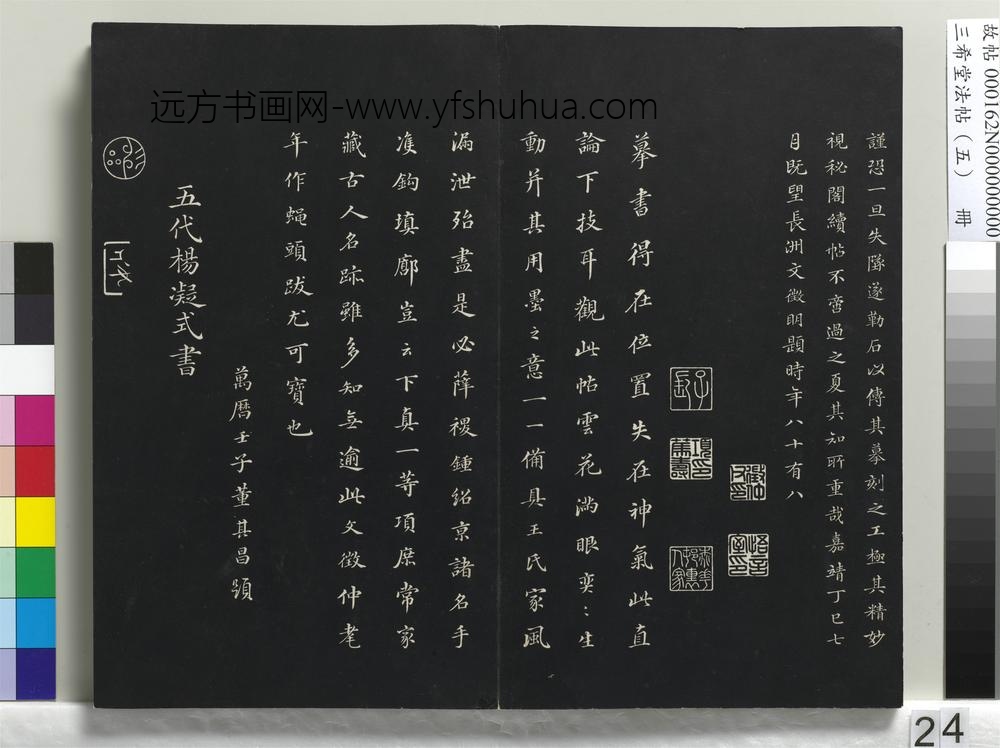 謹恐一旦失隊遂勒石以傳其摹刻之工極其精妙
視秘閣續帖不啻過之夏其知所重哉嘉靖丁巳七
月既望長洲文徵明題時年八十有八
摹書得在位置失在神氣此直
論下技耳觀此帖雲花滿眼奕〻生
動并其用墨之意一一備具王氏家風
漏泄殆盡是必薛稷鍾紹京諸名手
准鉤填廓豈云下真一等項庶常家
藏古人名跡雖多知無逾此文徵仲耄
年作蠅頭跋尤可寶也
萬曆壬子董其昌題
五代楊凝式書
远方书画网-www.yfshuhua.com
故帖000162N000000000
三希堂法帖（五） 冊
24